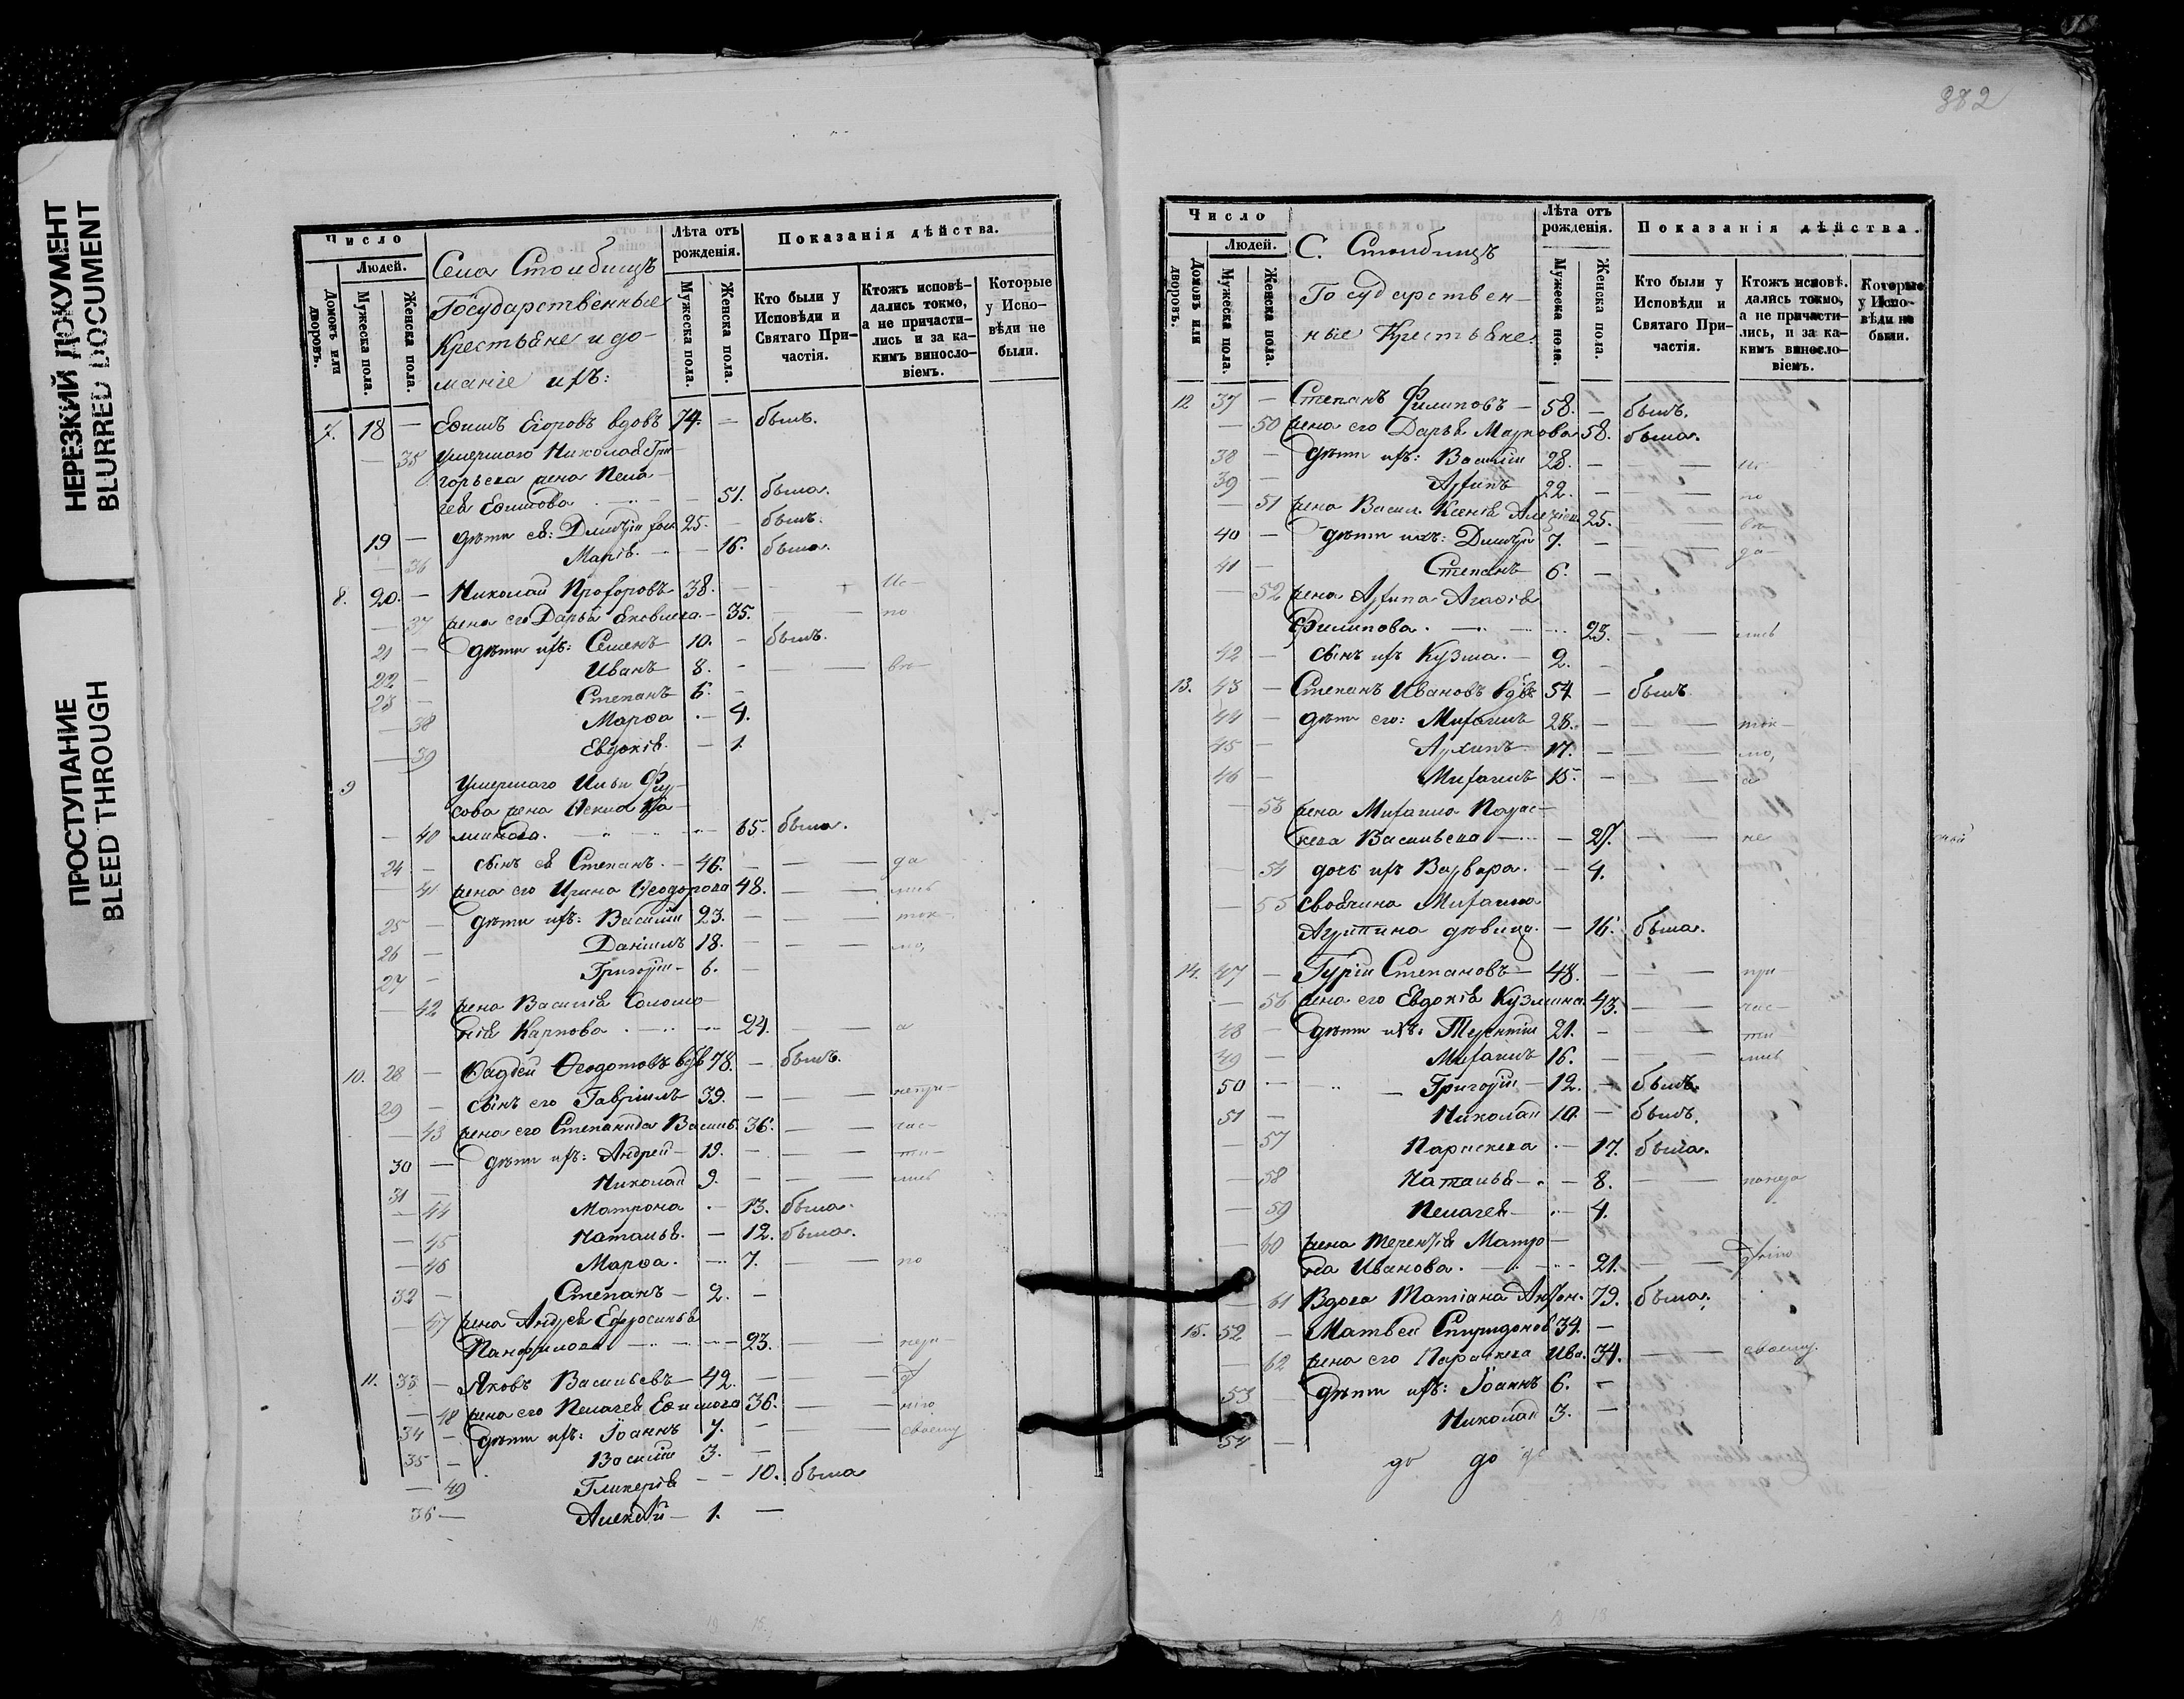 382
НЕРЕЗКИЙ ДОКУМЕНТ
BLURRED DOCUMENT
ПРОСТУПАНИЕ
BLEED THROUGH
Число
Людей.
Домовъ или дворовъ.
Мужеска пола.
Женска пола.
Села Столбищъ
Государственные
Крестьяне и до-
машніе ихъ:
Лѣта отъ рожденія.
Мужеска пола.
Женска пола.
Показанія дѣйства.
Кто были у Исповѣди и Святаго При-частія.
Ктожъ исповѣ-дались токмо, а не причасти-лись и за ка-кимъ винosло-віемъ.
Которые у Испо-вѣди не были.
7. 18 — Ѳ Егоровъ вдовъ 74. — былъ.
— 35 умершаго Николая Гри-
горьева жена Пела-
гея Ефимова — 51. была.
19 — дѣти ея: Димитрій 25. — былъ.
— 36 Марія. — 16. была.
8. 20. — Николай Прохоровъ 38. — Ис-
— 37 жена его Дарья Яковлева — 35. — по
21 — дѣти ихъ: Семенъ 10. — былъ.
22 — Иванъ 8. — — вѣ-
23 — Степанъ 6. —
— 38 Марѳа — 4.
— 39 Евдокія — 1.
9 умершаго Ильи Фир-
сова жена Ѳекла
— 40 — 65. была.
24 — сынъ ея Степанъ. — 46. — — да
— 41 жена его Ирина Ѳеодорова 48. — лись
25 — дѣти ихъ: Василій 23. — — ток-
26 — Даніилъ 18. — — мо,
27 — Григорій — 6. —
— 42 жена Василія Соломо-
нія Карпова — 24. — а
10. 28 — Ѳаддей Ѳеодотовъ вдв 78. — былъ.
29 — сынъ его Гавріилъ 39. — — непри-
— 43 жена его Степанида Васил. 36. — час-
30 — дѣти ихъ: Андрей — 19. — — ти-
31 — Николай 9. — — лись
— 44 Матрона — 13. была.
— 45 Наталья. — 12. была.
— 46 Марѳа. — 7. — по
32 — Степанъ — 2. —
— 47 жена Андрея Ефросинья
Панфилова — 23. — нера-
11. 33 — Яковъ Васильевъ — 42. — — д
— 48 жена его Пелагея Ефимова 36. — нію
34 — дѣти ихъ: Іоаннъ 7. — — своему
35 — Василій 3. —
— 49 Гликерія — 10. была
36 — Алексѣй — 1. —
Число
Людей.
Домовъ или дворовъ.
Мужеска пола.
Женска пола.
С. Столбищъ
Государствен-
ные Крестьяне.
Лѣта отъ рожденія.
Мужеска пола.
Женска пола.
Показанія дѣйства.
Кто были у Исповѣди и Святаго При-частія.
Ктожъ исповѣ-дались токмо, а не причасти-лись, и за ка-кимъ винoсло-віемъ.
Которые у Испо-вѣди не были.
12 37 — Степанъ Филиповъ — 58. — былъ.
— 50 жена его Дарья Маркова 58. была.
38 — дѣти ихъ: Василій 28. — — Ис
39 — Архипъ 22. — — по
— 51 жена Васил. Ксенія 25. — вѣ
40 — дѣти ихъ: Димитрій 7. — — да-
41 — Степанъ 6. —
— 52 жена Архипа Агаѳія
Филипова. — 23. — лись
42 — сынъ ихъ Кузма. — 2. —
13. 43 — Степанъ Ивановъ вдв 54 — былъ
44 — дѣти его: Михаилъ 28. — — ток-
45 — Архипъ 17. — — мо,
46 — Михаилъ 15. — — а
— 53 жена Михаила Парас-
кева Васильева — 27. — не
— 54 дочь ихъ Варвара. — 4.
— 55 своячина Михаила
Агрипина дѣвица. — 16. была.
14. 47 — Гурій Степановъ — 48. — — при
— 56 жена его Евдокія Кузмина 43. — час-
48 — дѣти ихъ: Терентій 21. — — ти
49 — Михаилъ 16. — — лись
50 — Григорій — 12. — былъ.
51 — Николай 10. — былъ.
— 57 Параскева — 17. была.
— 58 Наталья — 8. — понера
— 59 Пелагея — 4.
— 60 жена Терентія Матро-
на Иванова. — 21. — дѣнію
— 61 Вдова Татіана Антон. 79. была.
15. 52 — Матвей Спиридонов 34. —
— 62 жена его Параскева Ива. 34. — своему.
53 — дѣти ихъ: Іоаннъ 6. —
54 — Николай 3. —
до до до